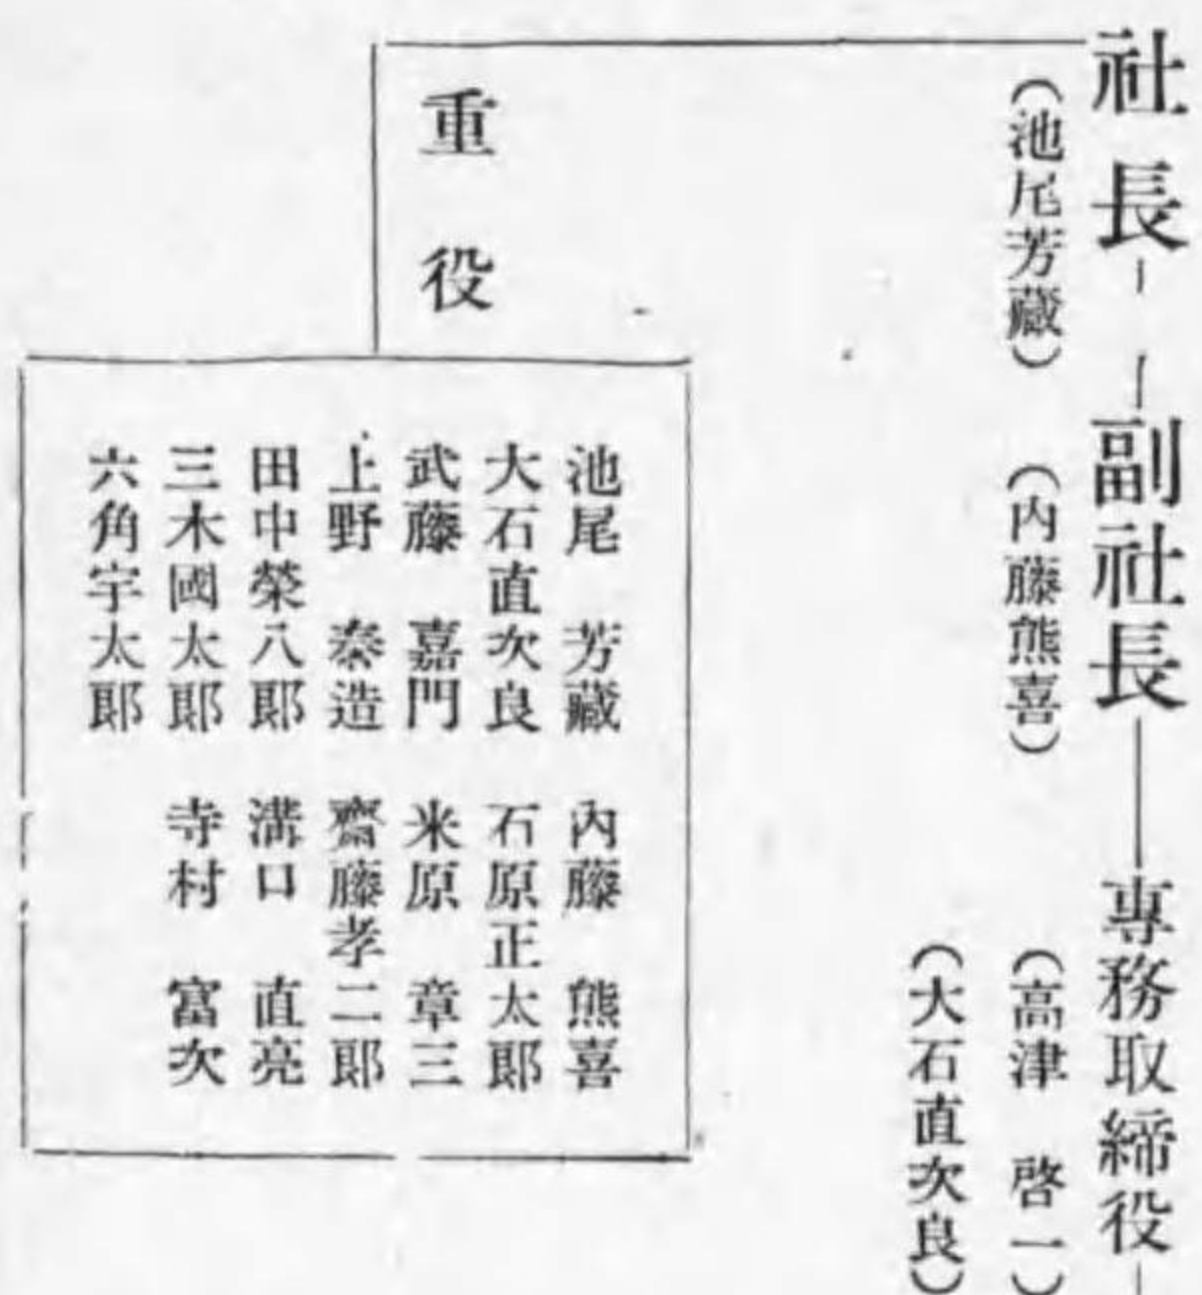 社長——副社長——專務取締役—
(池尾芳藏) (内藤熊喜) (高津 啓一)
(大石直次良)
重役
池尾 芳藏 內藤 熊喜
大石直次良 石原正太郎
武藤 嘉門 米原 章三
上野 泰造 齋藤孝二郎
田中榮八郎 溝口 直亮
三木國太郎 寺村 富次
六角宇太郎